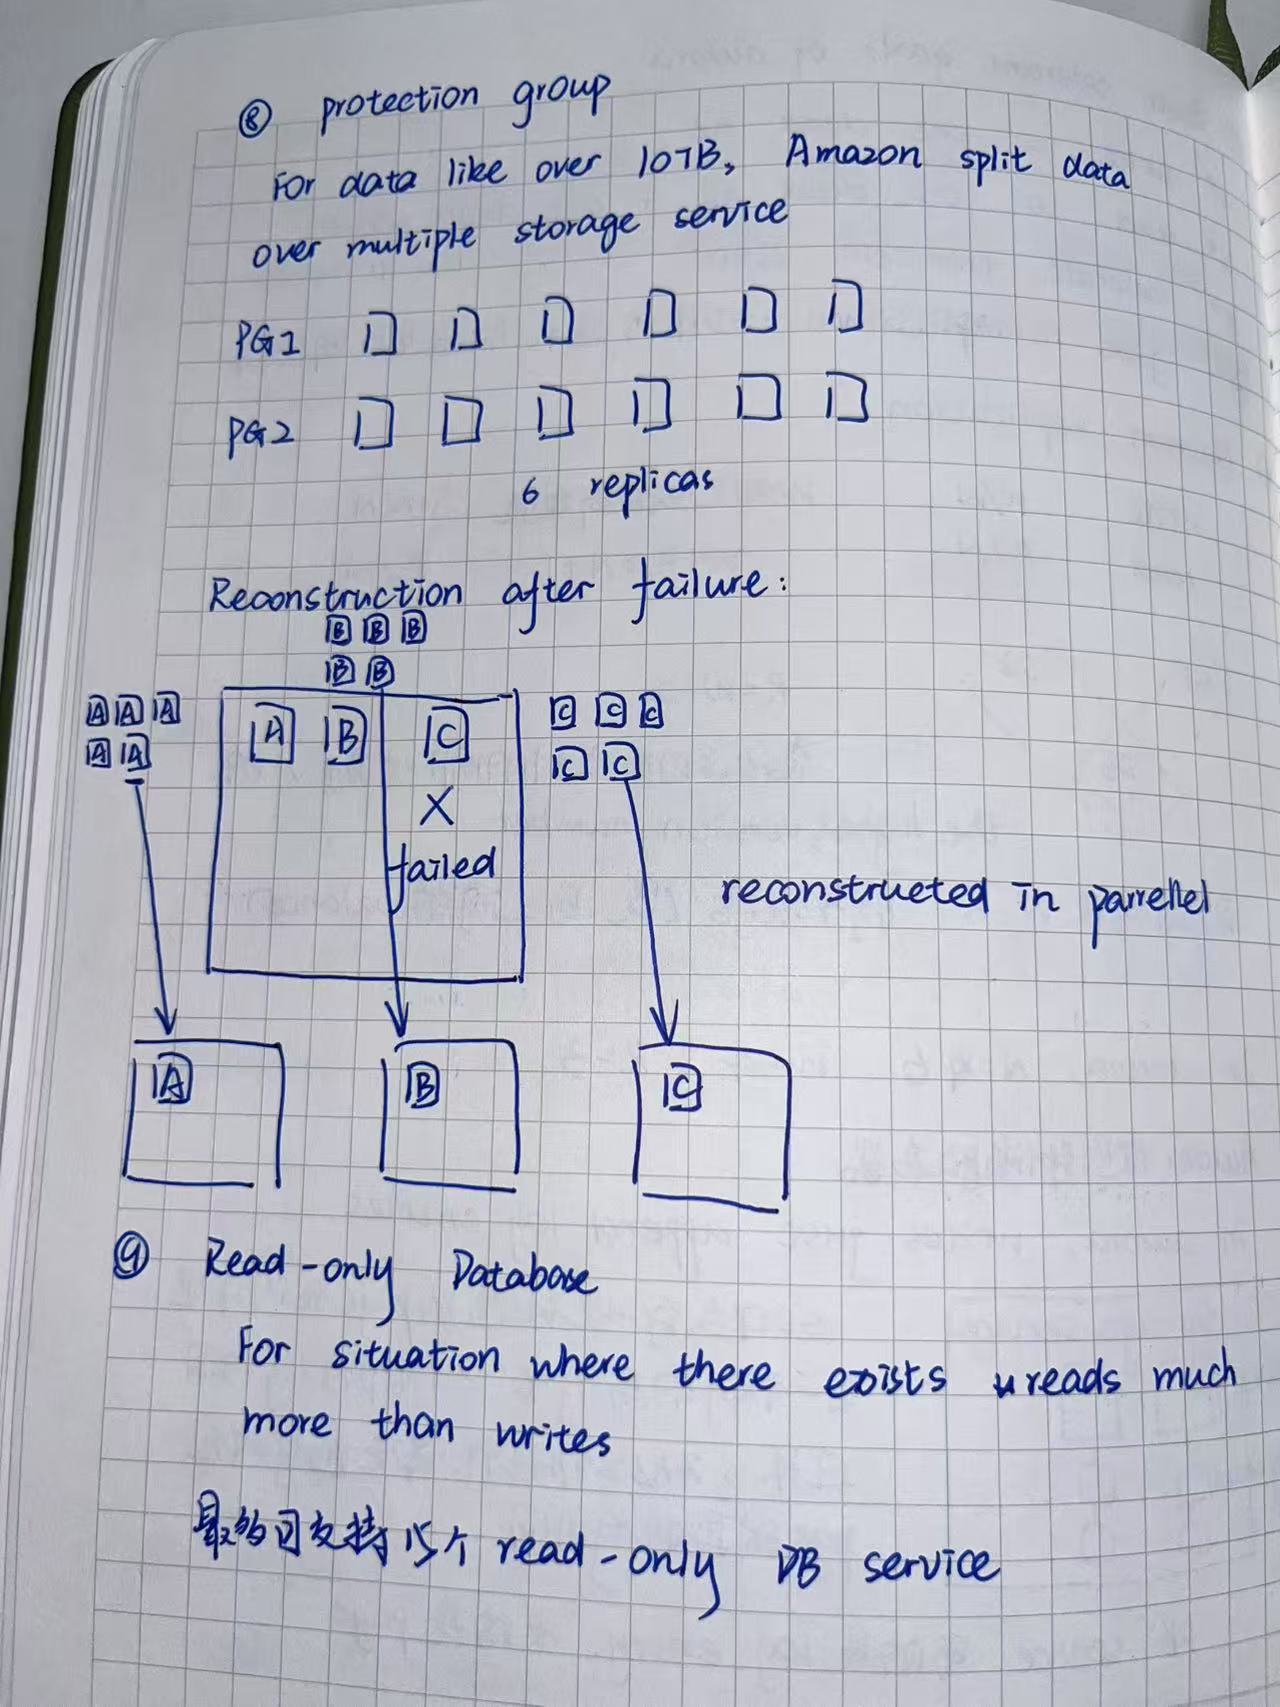 ⑧ protection group
For data like over 10TB, Amazon split data
over multiple storage service
PG1
PG2
6 replicas
Reconstruction after failure:
B B B
B B
A A A
A A
A B C
C C C
C C
X
failed
reconstructed in parrellel
A B C
⑨ Read-only Database
For situation where there exists reads much
more than writes
最多可支持15个 read-only DB service